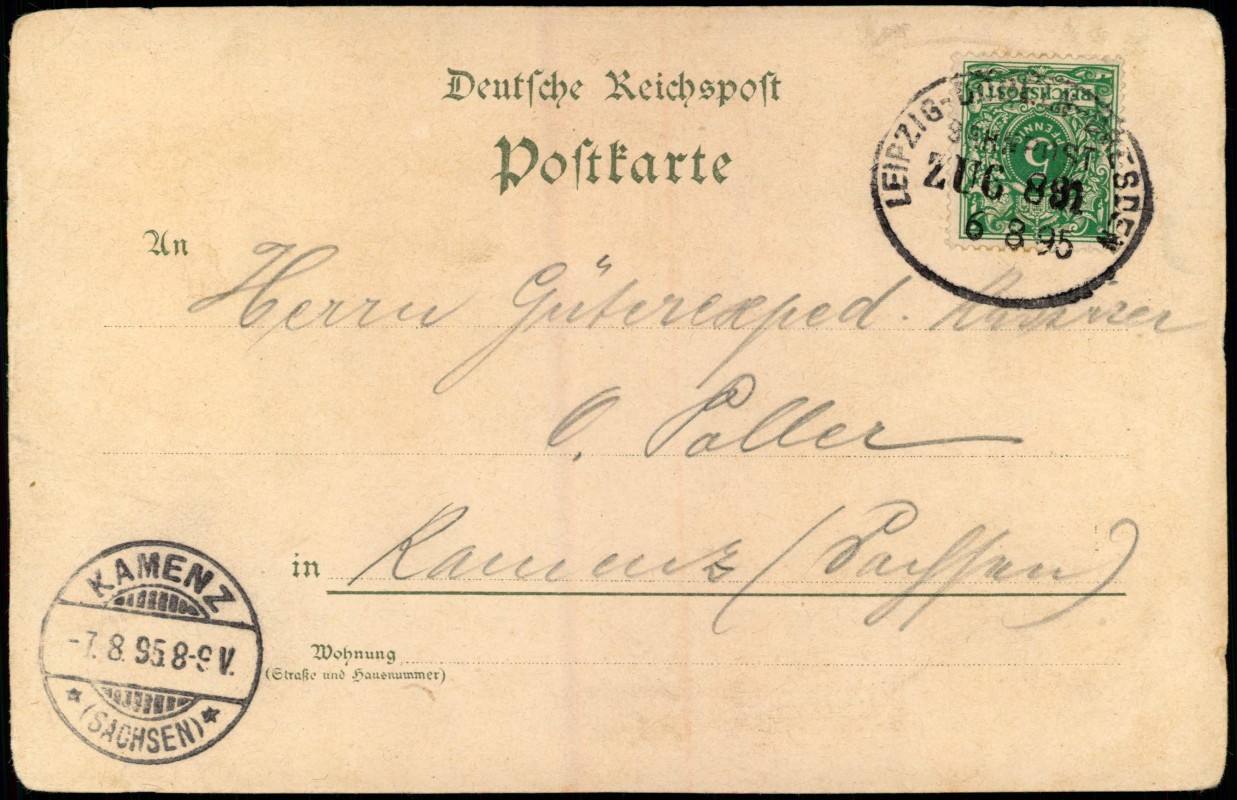 Deutsche Reichspost
Postkarte
REICHSPOST
5
PFENNIG
LEIPZIG- DRESDEN
BAHNPOST
ZUG
6 8 95
An Herrn Güterexped.
O. Poller
in Kamenz (Sachsen)
Wohnung
(Straße und Hausnummer)
KAMENZ
-7. 8. 95 8-9 V.
* (SACHSEN) *